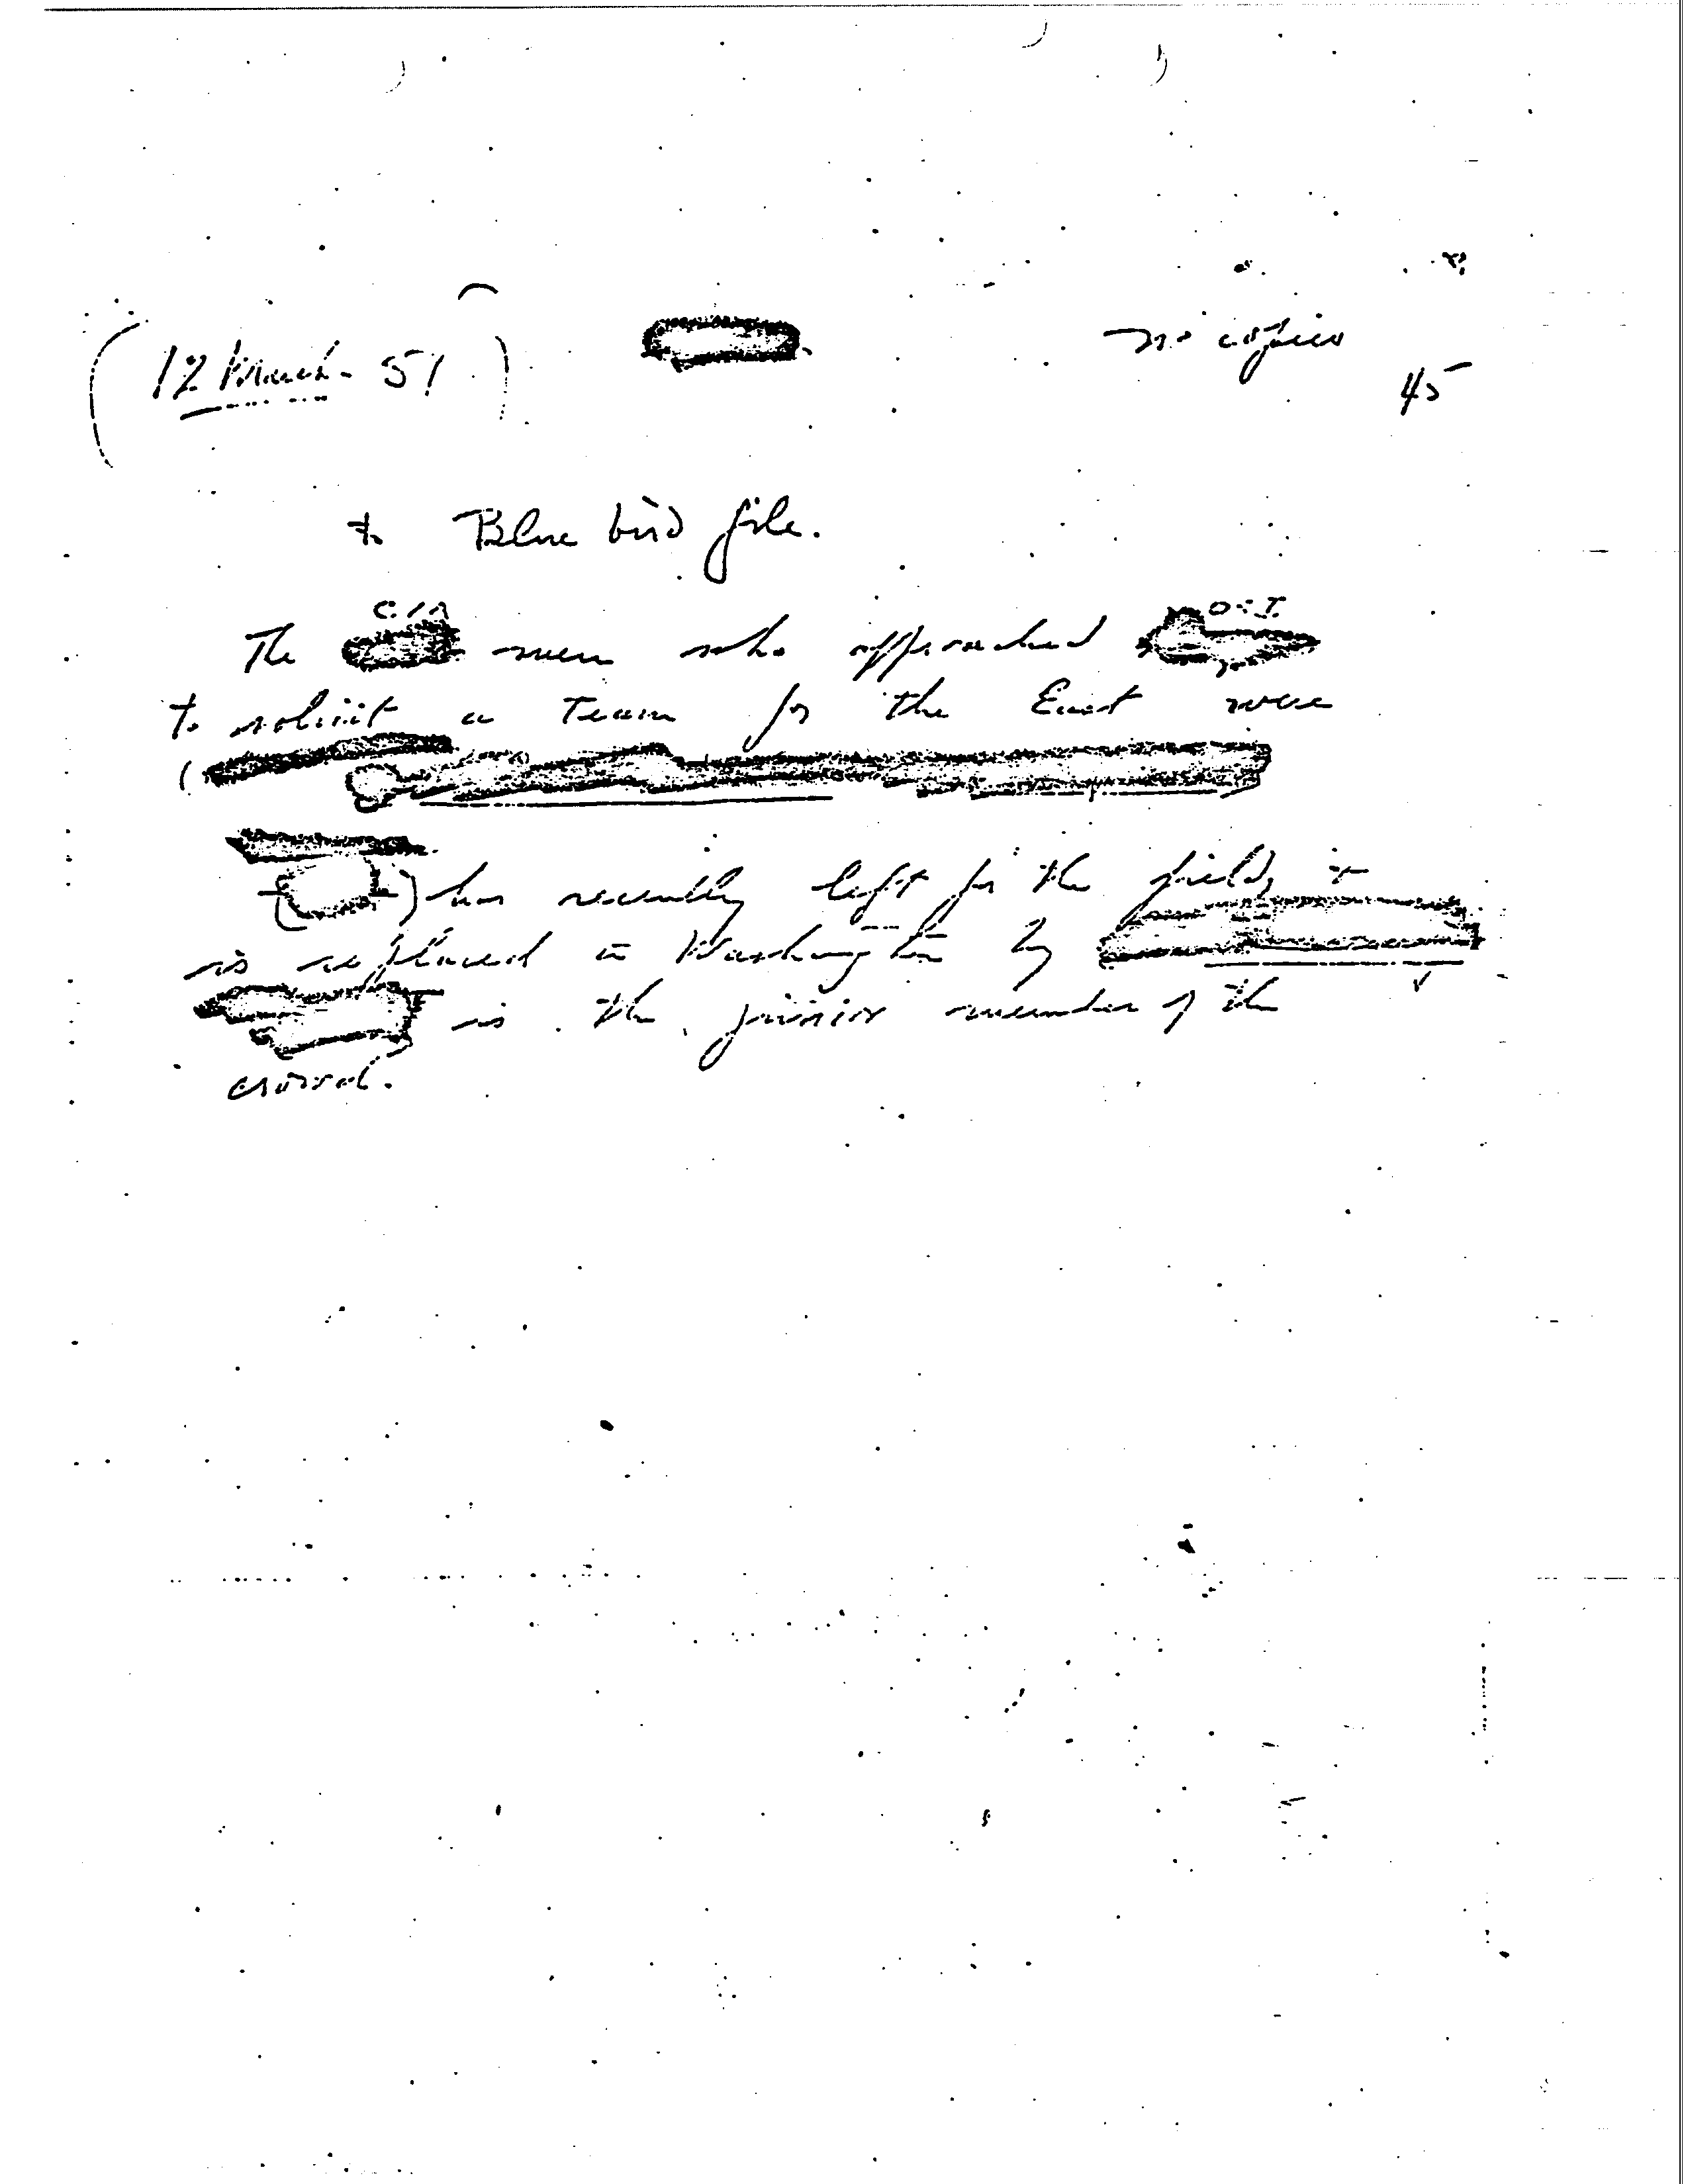 (12 March - 51)
no copies
45
to Blue bird file.
CIA
The men who approached
to solicit a Team for the East were
has recently left for the field, +
is replaced in Washington by
is the junior member of the
crowd.